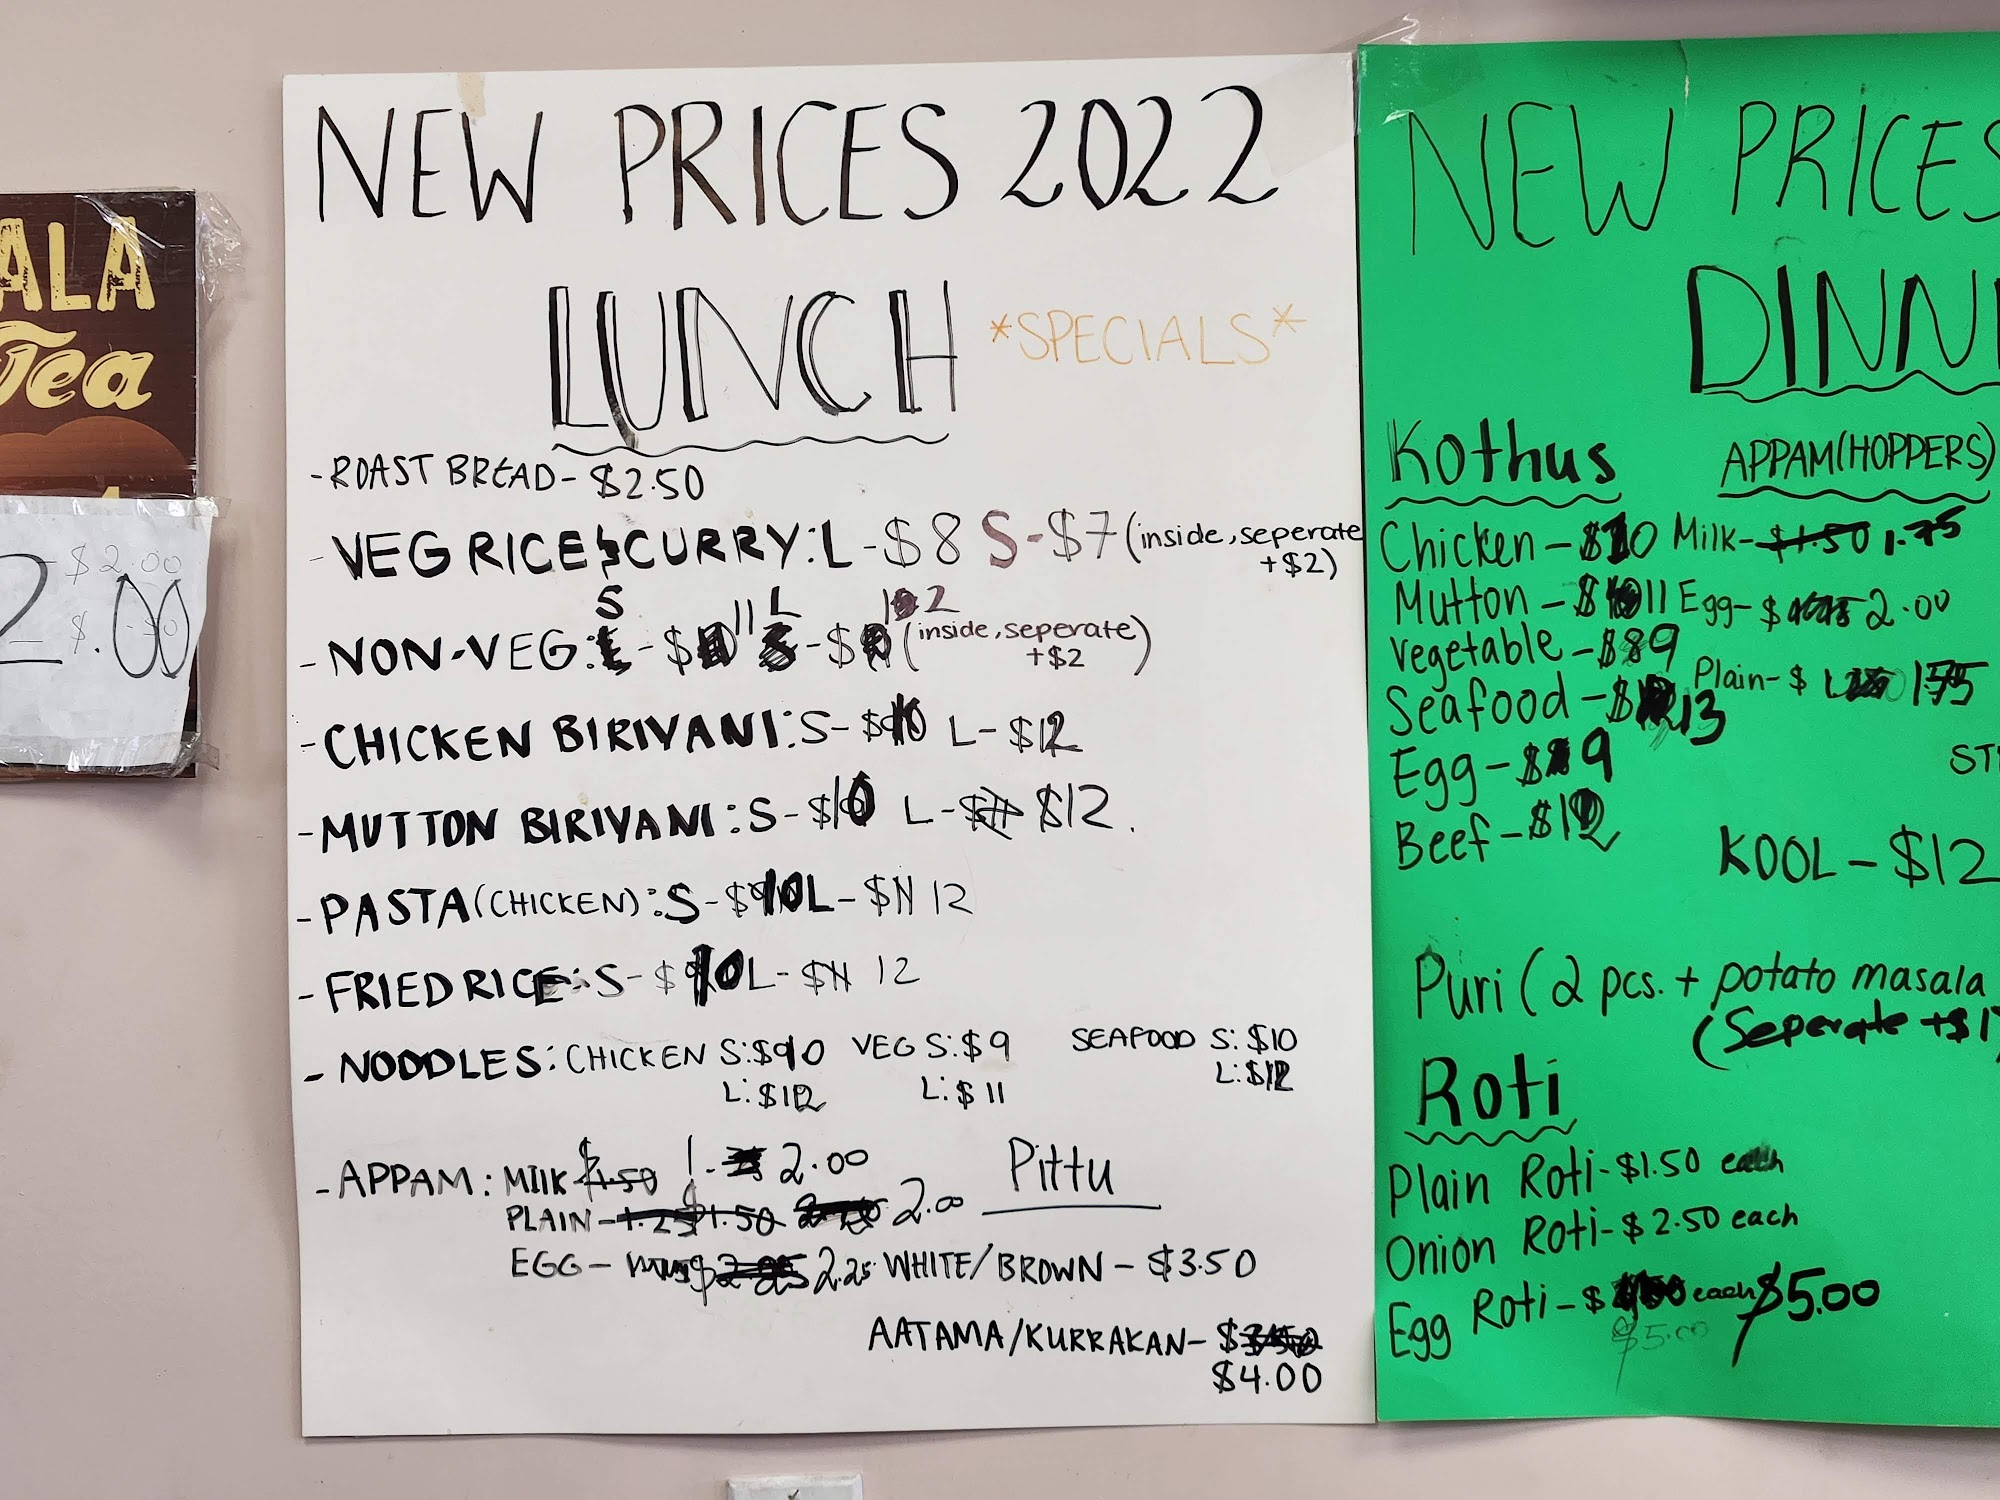 ALA
Tea
$2.00
2.00
NEW PRICES 2022
LUNCH *SPECIALS*
- ROAST BREAD - $2.50
- VEG RICE & CURRY: L - $8 S - $7 (inside, seperate
+$2)
- NON-VEG: S - $11 L - $12 (inside, seperate)
+$2
- CHICKEN BIRIYANI: S - $10 L - $12
- MUTTON BIRIYANI: S - $10 L - $11 $12.
- PASTA (CHICKEN): S - $10 L - $11 12
- FRIED RICE: S - $10 L - $11 12
- NOODLES: CHICKEN S: $10 VEG S: $9 SEAFOOD S: $10
L: $12 L: $11 L: $12
- APPAM: MILK $1.50 2.00
PLAIN - 1.25 $1.50 2.00
EGG - $2.25 2.25
Pittu
WHITE/BROWN - $3.50
AATAMA/KURRAKAN - $3.50
$4.00
NEW PRICES
DINN
Kothus
Chicken - $10
Mutton - $11
Vegetable - $9
Seafood - $13
Egg - $9
Beef - $12
APPAM (HOPPERS)
Milk - $1.50 1.75
Egg - $ 2.00
Plain - $ 1.75
ST
KOOL - $12
Puri (2 pcs. + potato masala
(Seperate +$1
Roti
Plain Roti - $1.50 each
Onion Roti - $2.50 each
Egg Roti - $ each $5.00
$5.00